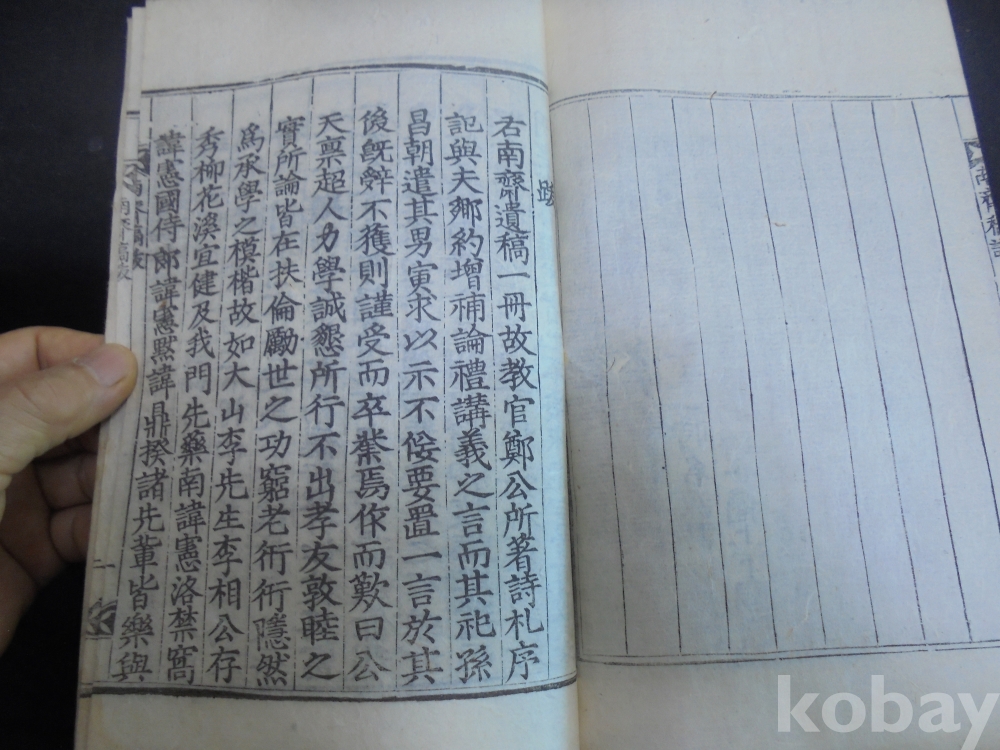 跋
右南齋遺稿一冊故教官鄭公所著詩札序
記與夫鄕約增補論禮講義之言而其祀孫
昌朝遣其男寅求以示不佞要置一言於其
後旣辭不獲則謹受而卒業焉作而歎曰公
天稟超人力學誠懇所行不出孝友敦睦之
實所論皆在扶倫勵世之功窮老衎衎隱然
爲承學之模楷故如大山李先生李相公存
秀柳花溪宜健及我門先藥南諱憲洛禁窩
諱憲國侍郞諱憲默諱鼎揆諸先輩皆樂與
一
kobay